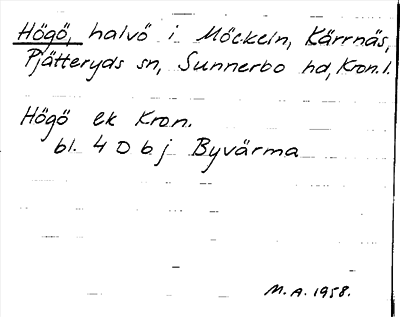 Högö, halvö i Möckeln, Kärrnäs,
Pjätteryds sn, Sunnerbo hd, Kron. l.
Högö ek Kron.
bl. 4 D b j Byvärma
M. A. 1958.